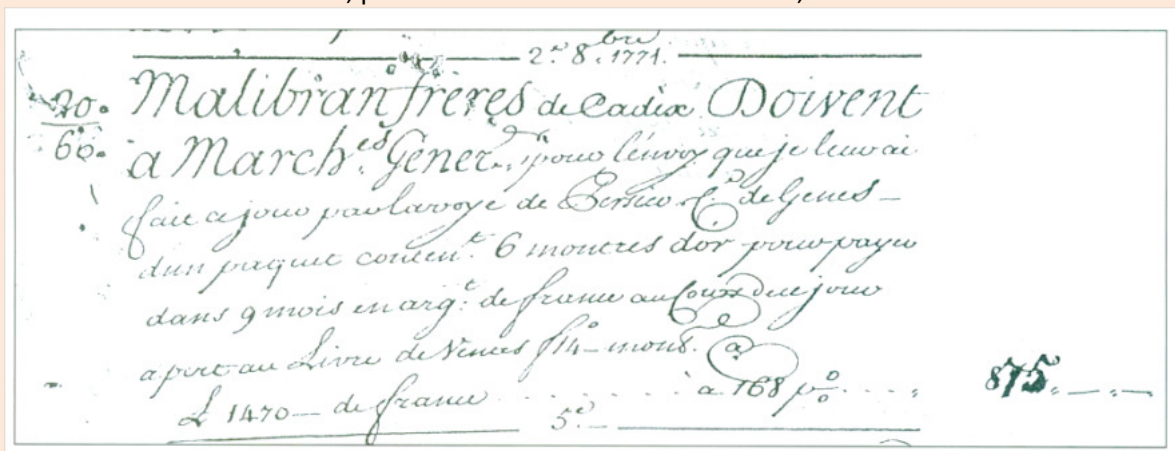 2.e 8.bre 1771.
20. Malibran freres de Cadix Doivent
60. a March.es Gener. pour l'envoy que je leur ai
fait ce jour par la voye de Persico & C.e de Genes –
d'un paquet conten.t 6 montres d'or pour payer
dans 9 mois en arg.t de france au Cours de ce jour
apert au Livre de Ventes f.o 14 – mont.
£ 1470 – de france . . . . . . a 168 p% . . . . 875. – . –
5.e